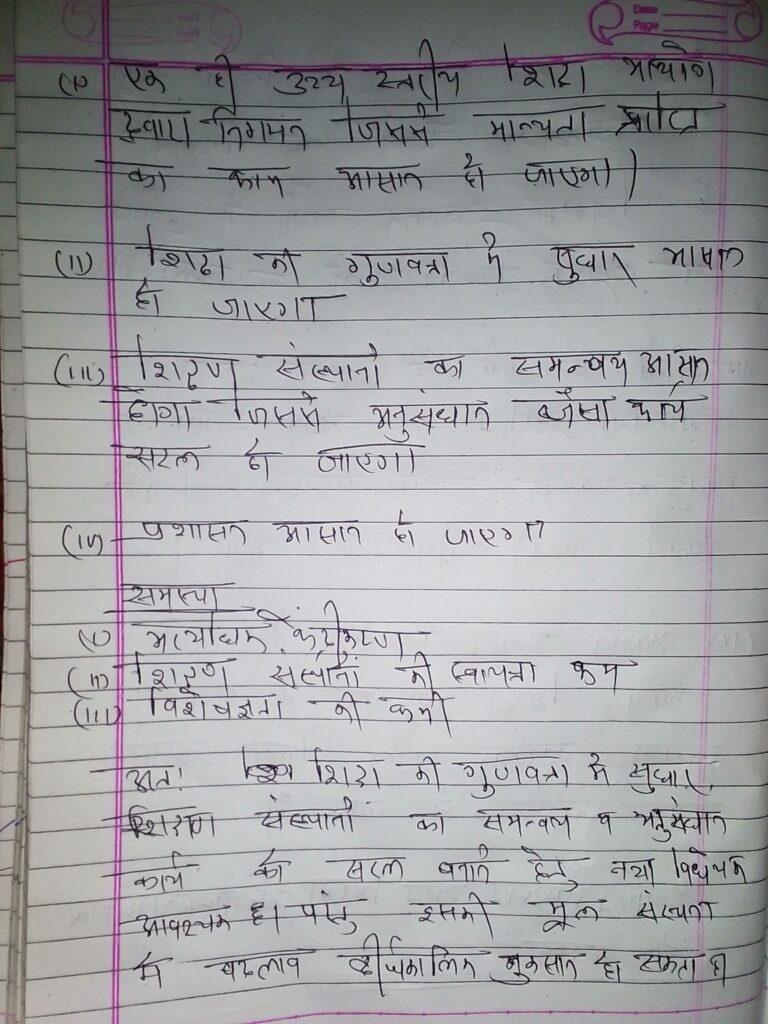 Date
Page
(i) एक ही उच्च स्तरीय शिक्षा आयोग
द्वारा नियमन जिससे मान्यता प्राप्ति
का काम आसान हो जाएगा।
(ii) शिक्षा की गुणवत्ता में सुधार आसान
हो जाएगा
(iii) शिक्षण संस्थानों का समन्वय आसान
होगा जिससे अनुसंधान जैसा कार्य
सरल हो जाएगा
(iv) प्रशासन आसान हो जाएगा
समस्या
(i) अत्याधिक केंद्रीकरण
(ii) शिक्षण संस्थानों की स्वायत्ता कम
(iii) विशेषज्ञता की कमी
अतः शिक्षा की गुणवत्ता में सुधार,
शिक्षण संस्थानों का समन्वय व अनुसंधान
कार्य को सरल बनाने हेतु नया विधेयक
आवश्यक है। परंतु इसकी मूल संरचना
में बदलाव दीर्घकालिक नुकसान हो सकता है